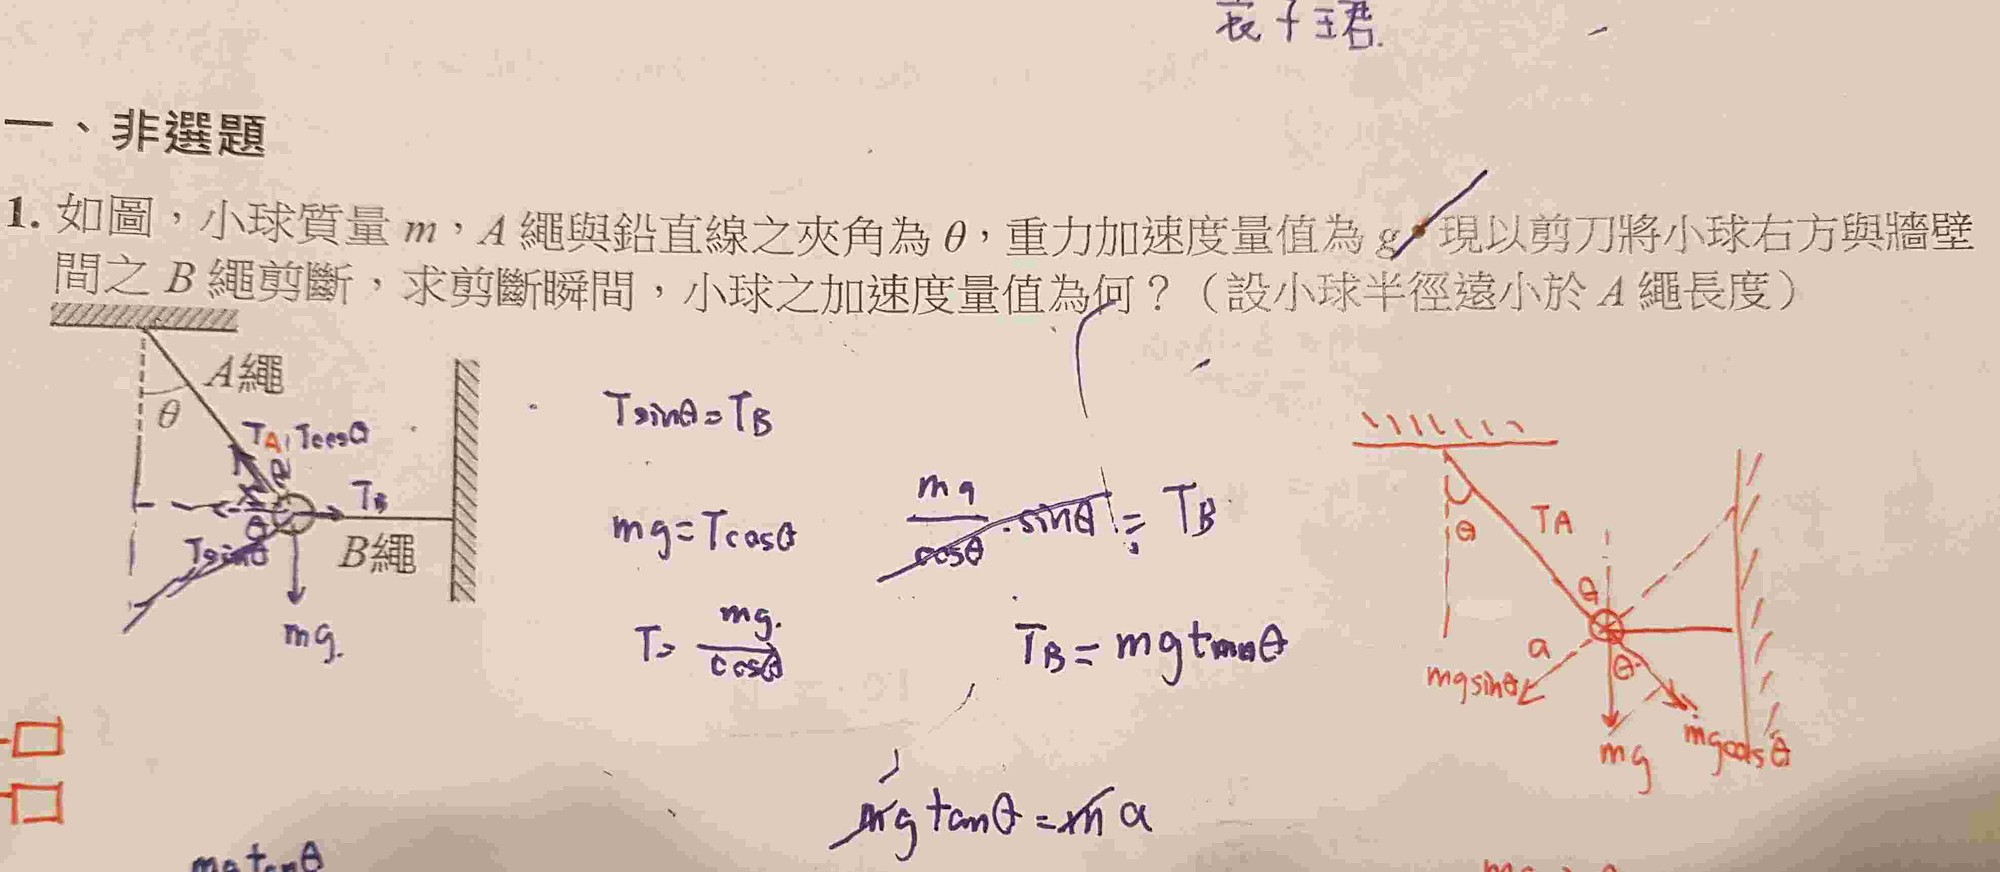 一、非選題
1. 如圖，小球質量 m，A 繩與鉛直線之夾角為 θ，重力加速度量值為 g。現以剪刀將小球右方與牆壁
間之 B 繩剪斷，求剪斷瞬間，小球之加速度量值為何？（設小球半徑遠小於 A 繩長度）
A繩
θ
TA Tcosθ
θ
TB
θ
Tsinθ
B繩
mg.
Tsinθ = TB
mg = Tcosθ
mg/cosθ · sinθ = TB
T = mg./cosθ
TB = mg tanθ
mg tanθ = m a
mg tanθ
θ
TA
θ
a
θ
mg sinθ
mg
mg cosθ